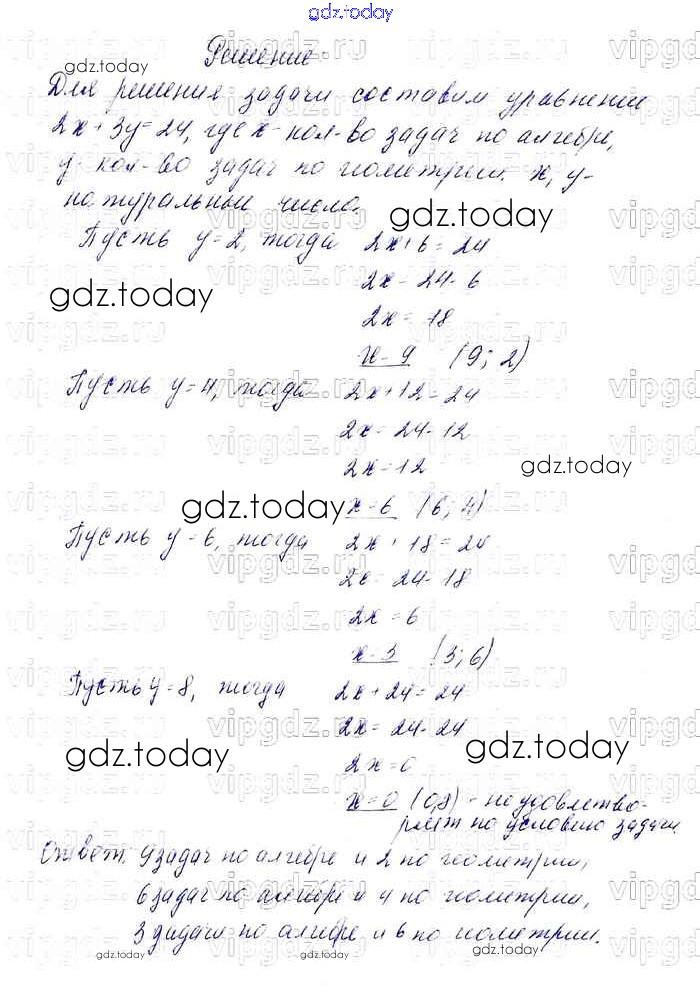 gdz.today
gdz.today
Решение
Для решения задачи составим уравнение
2x+3y=24, где x- кол-во задач по алгебре,
y- кол-во задач по геометрии. x, y-
натуральные числа.
gdz.today
Пусть y=2, тогда 2x+6=24
gdz.today
2x=24-6
2x=18
x=9 (9; 2)
Пусть y=4, тогда 2x+12=24
2x=24-12
2x=12
gdz.today
gdz.today
x=6 (6; 4)
Пусть y=6, тогда 2x+18=24
2x=24-18
2x=6
x=3 (3; 6)
Пусть y=8, тогда 2x+24=24
2x=24-24
gdz.today
gdz.today
2x=0
x=0 (0,8) - не удовлетво-
ряет по условию задачи.
Ответ: 9 задач по алгебре и 2 по геометрии,
6 задач по алгебре и 4 по геометрии,
3 задачи по алгебре и 6 по геометрии.
gdz.today
gdz.today